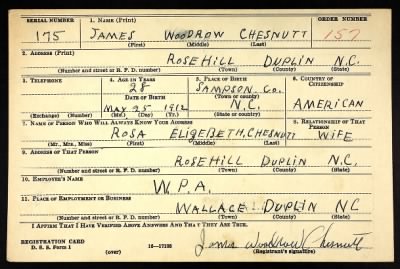 SERIAL NUMBER 1. NAME (Print) ORDER NUMBER
175 JAMES WOODROW CHESNUTT 157
(First) (Middle) (Last)
2. ADDRESS (Print)
ROSEHILL DUPLIN N.C.
(Number and street or R. F. D. number) (Town) (County) (State)
3. TELEPHONE 4. AGE IN YEARS 5. PLACE OF BIRTH 6. COUNTRY OF CITIZENSHIP
28 SAMPSON Co.
DATE OF BIRTH (Town or county)
MAY 25, 1912 N.C. AMERICAN
(Exchange) (Number) (Mo.) (Day) (Yr.) (State or country)
7. NAME OF PERSON WHO WILL ALWAYS KNOW YOUR ADDRESS 8. RELATIONSHIP OF THAT PERSON
ROSA ELIZEBETH, CHESNUTT WIFE
(Mr., Mrs., Miss) (First) (Middle) (Last)
9. ADDRESS OF THAT PERSON
ROSEHILL DUPLIN N.C.
(Number and street or R. F. D. number) (Town) (County) (State)
10. EMPLOYER'S NAME
W.P.A.
11. PLACE OF EMPLOYMENT OR BUSINESS
WALLACE DUPLIN NC
(Number and street or R. F. D. number) (Town) (County) (State)
I AFFIRM THAT I HAVE VERIFIED ABOVE ANSWERS AND THAT THEY ARE TRUE.
REGISTRATION CARD James Woodrow Chesnutt
D. S. S. Form 1 (over) 16—17105 (Registrant's signature)